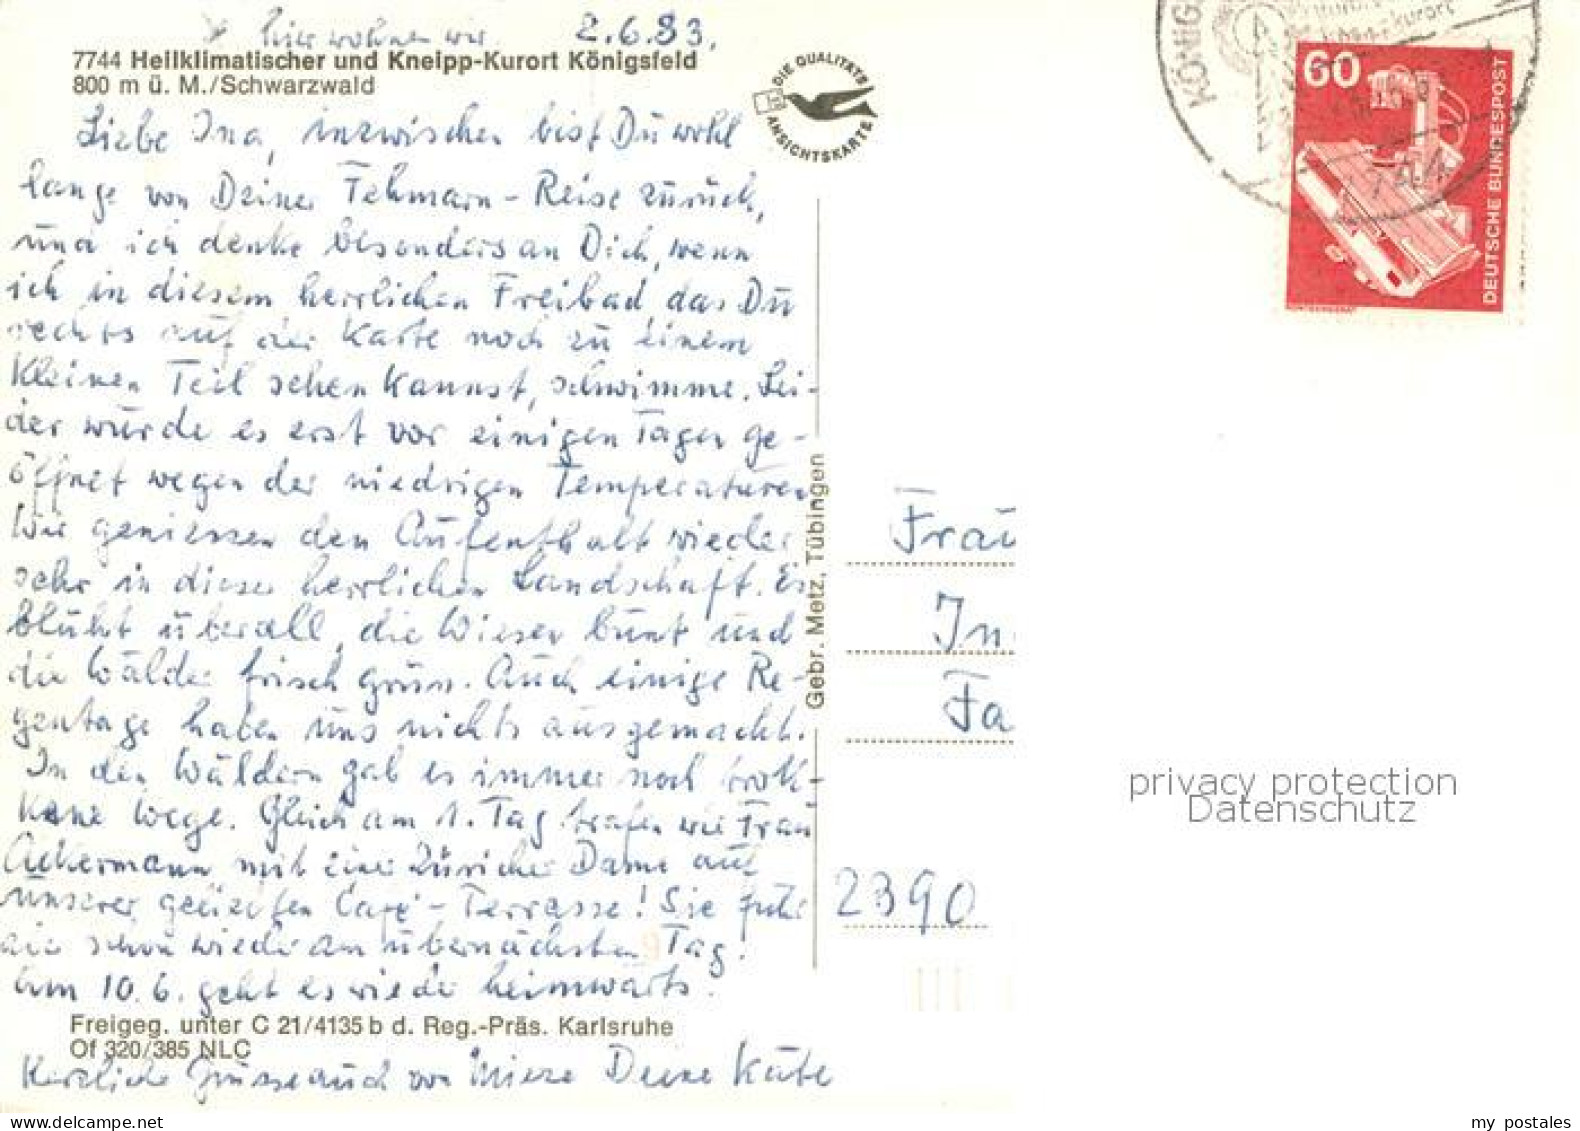 * hier wohnen wir. 2.6.83.
7744 Heilklimatischer und Kneipp-Kurort Königsfeld
800 m ü. M./Schwarzwald
DIE QUALITÄTS
ANSICHTSKARTE
Liebe Ina, inzwischen bist Du wohl
lange von Deiner Fehmarn-Reise zurück,
und ich denke besonders an Dich, wenn
ich in diesem herrlichen Freibad, das Du
rechts auf der Karte noch zu einem
kleinen Teil sehen kannst, schwimme. Lei-
der wurde es erst vor einigen Tagen ge-
öffnet wegen der niedrigen Temperaturen.
Wir geniessen den Aufenthalt wieder
sehr in dieser herrlichen Landschaft. Es
blüht überall, die Wiesen bunt und
die Wälder frisch grün. Auch einige Re-
gentage haben uns nichts ausgemacht.
In den Wäldern gab es immer noch trok-
kene Wege. Gleich am 1. Tag trafen wir Frau
Ackermann mit einer Züricher Dame auf
unserer geliebten Café-Terrasse! Sie fuhr
schon wieder am übernächsten Tag!
Am 10.6. geht es wieder heimwärts.
Freigeg. unter C 21/4135 b d. Reg.-Präs. Karlsruhe
Of 320/385 NLC
Herzliche Grüsse auch von Miere Deine Käte
Gebr. Metz, Tübingen
KÖNIG
60
DEUTSCHE BUNDESPOST
Frau
In
Fa
2390
privacy protection
Datenschutz
my postales